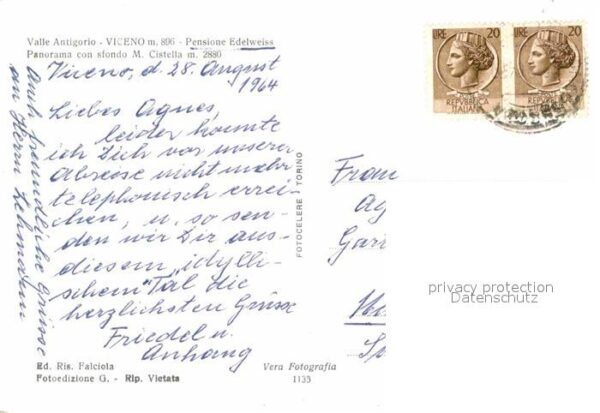 Valle Antigorio - VICENO m. 896 - Pensione Edelweiss
Panorama con sfondo M. Cistella m. 2880
Viceno, d. 28. August
1964
Liebes Agnes,
leider konnte
ich Dich vor unserer
Abreise nicht mehr
telephonisch errei-
chen, u. so sen-
den wir Dir aus
diesem "idylli-
schem" Tal die
herzlichsten Grüsse
Friedel u.
Anhang
Auch freundliche Grüsse
an Herrn
Ed. Ris. Falciola
Fotoedizione G. - Rip. Vietata
Vera Fotografia
1135
FOTOCELERE TORINO
LIRE 20
POSTE
REPVBBLICA
ITALIANA
LIRE 20
POSTE
REPVBBLICA
ITALIANA
Frau
privacy protection
Datenschutz